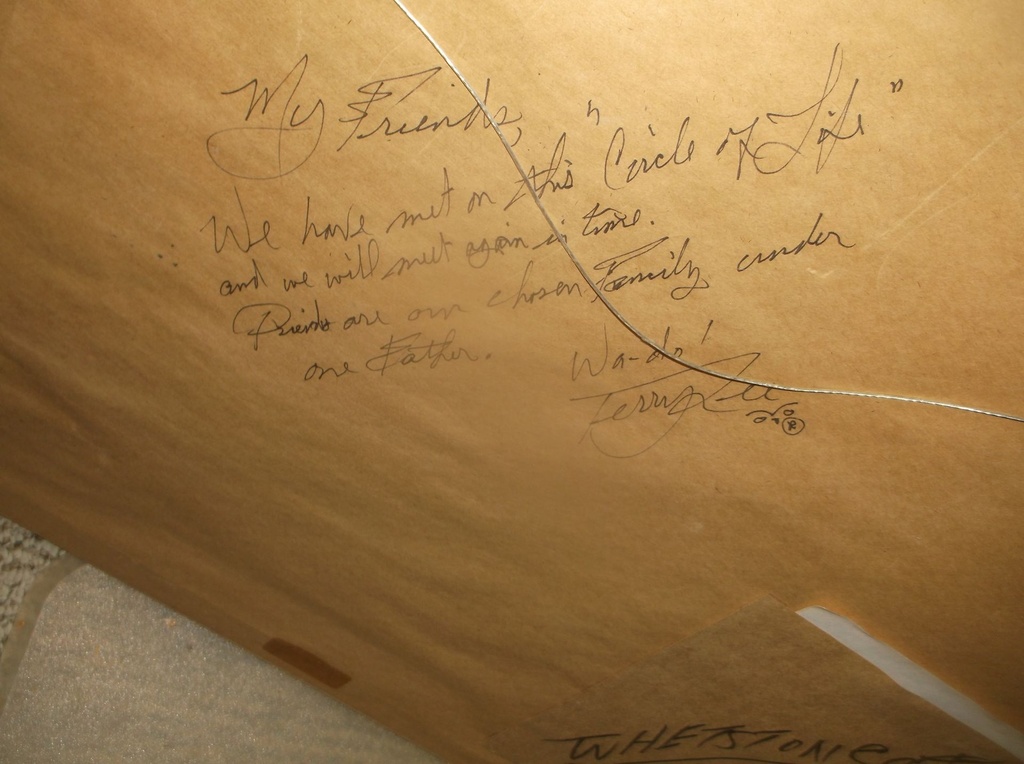 My Friends,
We have met on this "Circle of Life"
and we will meet again in time.
Friends are our chosen Family under
one Father.
Wa-do!
Terry Lee
WHETSTONE